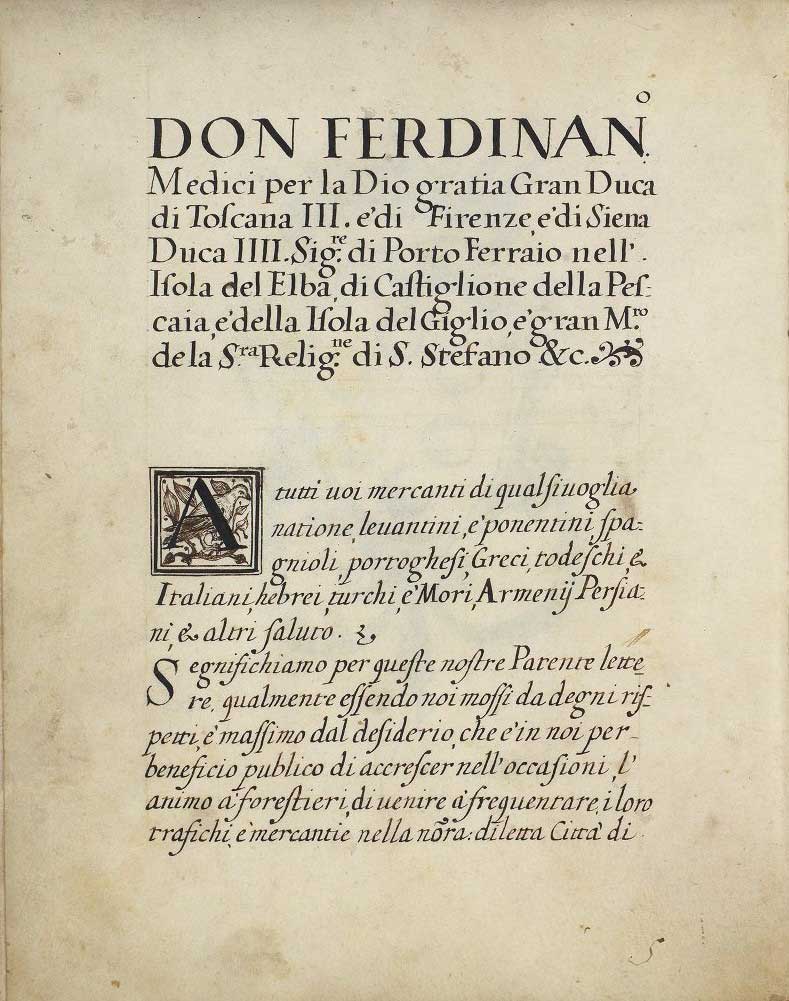 DON FERDINAN.º
Medici per la Dio gratia Gran Duca
di Toſcana III. é di Firenze, é di Siena
Duca IIII. Sig.re di Porto Ferraio nell'.
Iſola del Elba, di Caſtiglione della Peſ:
caia, é della Iſola del Giglio, é gran M.ro
de la S.ra Relig.ne di S. Stefano &c.
A tutti uoi mercanti di qualſiuoglia
natione, leuantini, é ponentini, ſpa:
gnioli, portogheſi, Greci, todeſchi, &
Italiani, hebrei, turchi, é Mori, Armenij Perſia:
ni, & altri ſaluto.
Segnifichiamo per queſte noſtre Patente lette
re, qualmente eſſendo noi moſſi da degni riſ:
petti, é maſſimo dal deſiderio, che é in noi per
beneficio publico di accreſcer nell'occaſioni, l'
animo á foreſtieri, di uenire á frequentare, i loro
trafichi, é mercantie nella nõra: diletta Cittá di